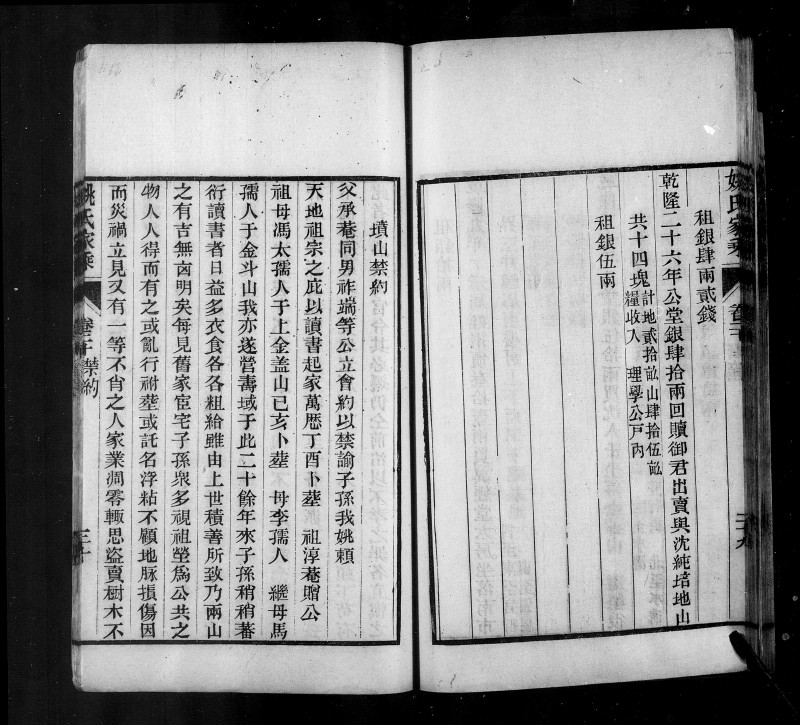 姚氏家乘
租銀肆兩貳錢
乾隆二十六年公堂銀肆拾兩回贖御君出賣與沈純培地山
共十四塊計地貳拾畝山肆拾伍畝
糧收入 理學公戶內
租銀伍兩
二十九
墳山禁約
父承菴同男祚端等公立會約以禁諭子孫我姚賴
天地祖宗之庇以讀書起家萬厯丁酉卜塟 祖淳菴贈公
祖母馮太孺人于上金盖山己亥卜塟 母李孺人 繼母馬
孺人于金斗山我亦遂營壽域于此二十餘年來子孫稍稍蕃
衍讀書者日益多衣食各各粗給雖由上世積善所致乃兩山
之有吉無㐫明矣每見舊家宦宅子孫衆多視祖塋為公共之
物人人得而有之或亂行祔塟或託名浮粘不顧地脉損傷因
而災禍立見又有一等不肖之人家業凋零輙思盜賣樹木不
姚氏家乘
禁約
三十